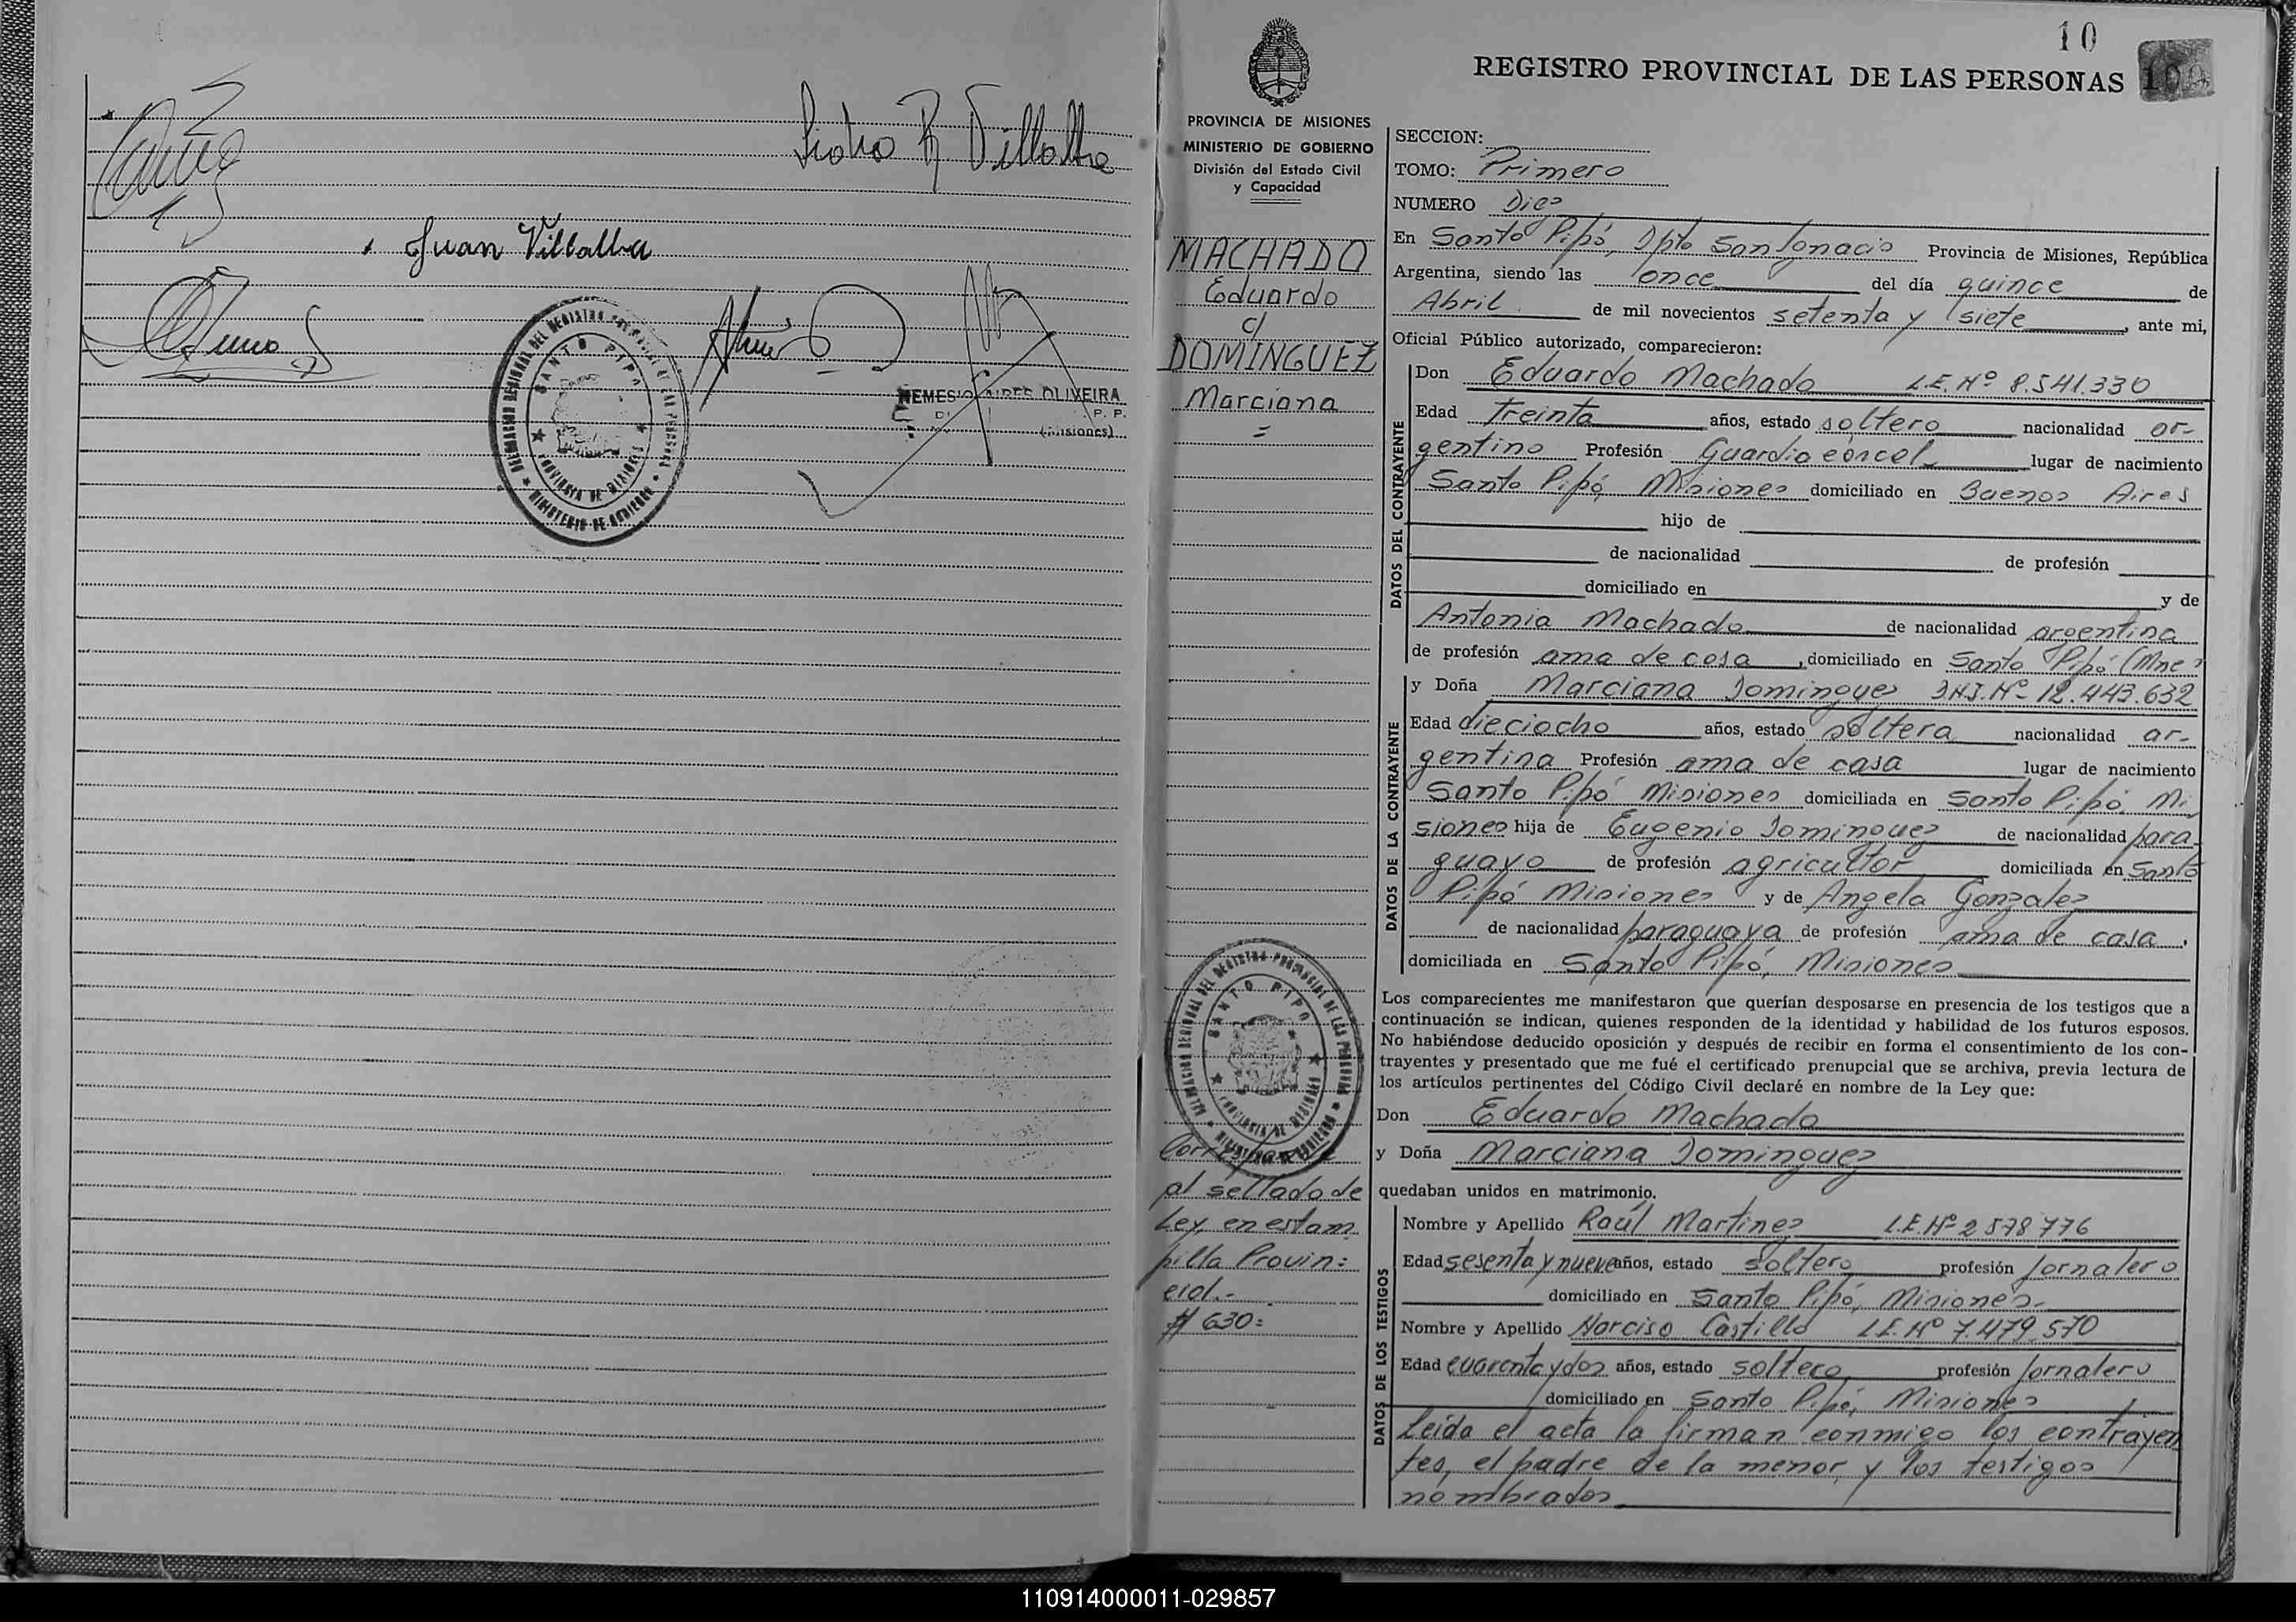 Juan Villalba
REGISTRO PROVINCIAL DE LAS PERSONAS
SANTO PIPO
PROVINCIA DE MISIONES
MINISTERIO DE GOBIERNO
NEMESIO AIRES OLIVEIRA
(Misiones)
10
REGISTRO PROVINCIAL DE LAS PERSONAS
100
PROVINCIA DE MISIONES
MINISTERIO DE GOBIERNO
División del Estado Civil
y Capacidad
MACHADO
Eduardo
c/
DOMINGUEZ
Marciana
=
SANTO PIPO
al sellado de
Ley en estam
pilla Provin:
cial.-
$ 630=
SECCION:
TOMO: Primero
NUMERO Diez
En Santo Pipó, Dpto San Ignacio Provincia de Misiones, República
Argentina, siendo las once del día quince de
Abril de mil novecientos setenta y siete, ante mi,
Oficial Público autorizado, comparecieron:
DATOS DEL CONTRAYENTE
Don Eduardo Machado L.E.Nº 8.541.330
Edad treinta años, estado soltero nacionalidad ar-
gentino Profesión Guardia cárcel lugar de nacimiento
Santo Pipó, Misiones domiciliado en Buenos Aires
hijo de
de nacionalidad de profesión
domiciliado en y de
Antonia Machado de nacionalidad argentina
de profesión ama de casa, domiciliado en Santo Pipó (Mnes
DATOS DE LA CONTRAYENTE
y Doña Marciana Dominguez D.N.I.Nº 12.443.632
Edad dieciocho años, estado soltera nacionalidad ar-
gentina Profesión ama de casa lugar de nacimiento
Santo Pipó Misiones domiciliada en Santo Pipó, Mi
siones hija de Eugenio Dominguez de nacionalidad para
guayo de profesión agricultor domiciliada en Santo
Pipó Misiones y de Angela Gonzalez
de nacionalidad paraguaya de profesión ama de casa,
domiciliada en Santo Pipó, Misiones
Los comparecientes me manifestaron que querían desposarse en presencia de los testigos que a
continuación se indican, quienes responden de la identidad y habilidad de los futuros esposos.
No habiéndose deducido oposición y después de recibir en forma el consentimiento de los con-
trayentes y presentado que me fué el certificado prenupcial que se archiva, previa lectura de
los artículos pertinentes del Código Civil declaré en nombre de la Ley que:
Don Eduardo Machado
y Doña Marciana Dominguez
quedaban unidos en matrimonio.
DATOS DE LOS TESTIGOS
Nombre y Apellido Raúl Martinez L.E.Nº 2 578 776
Edad sesenta y nueve años, estado soltero profesión jornalero
domiciliado en Santo Pipó, Misiones.-
Nombre y Apellido Narciso Castillo L.E.Nº 7.479.570
Edad cuarenta y dos años, estado soltero profesión jornalero
domiciliado en Santo Pipó, Misiones
Leida el acta la firman conmigo los contrayen
tes, el padre de la menor y los testigos
nombrados
110914000011-029857